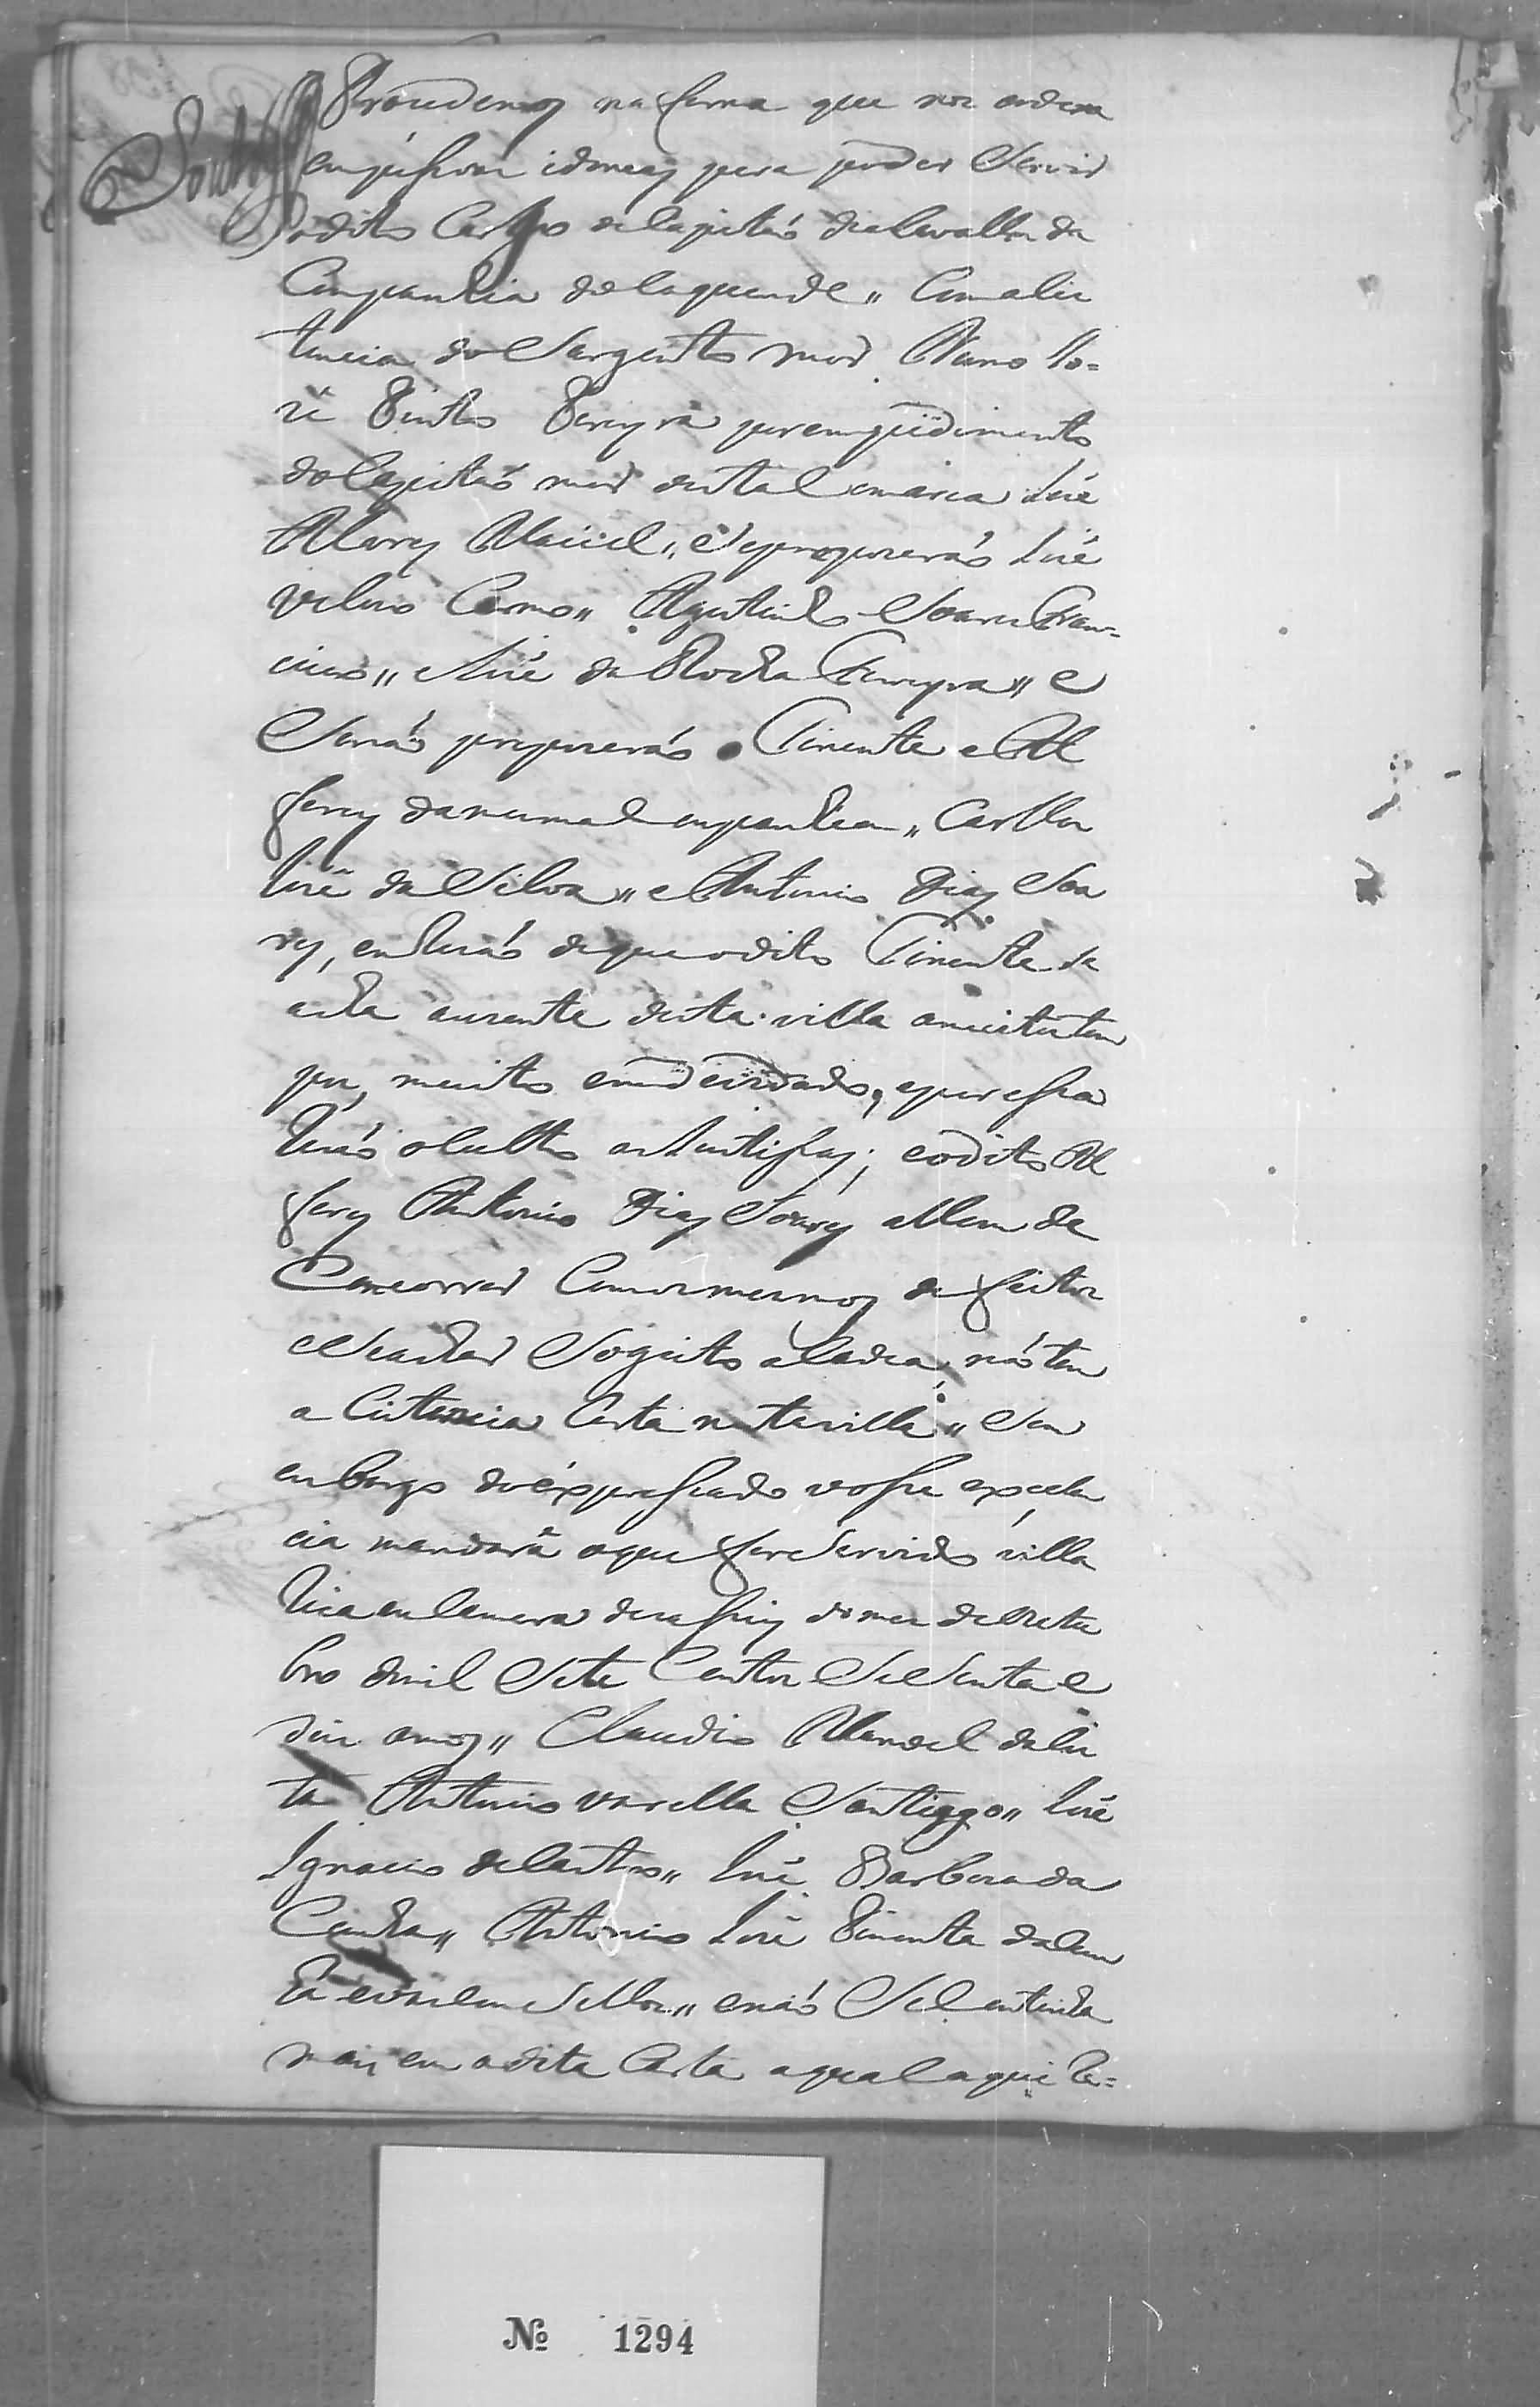 Procedemos na forma que nos ordena
em pessoas idoneas para poder Servir
o dito Cargo de Capitaõ de Cavallos da
Companhia de Laguende,, Com alis
tencia do Sargento mor Nuno Jo=
zê Pinto Pereyra por empedimento
do Capitaõ mor desta Comarca Joze
Alvez Maciel,, e Se propuzeraõ Joze
Velozo Carmo,, Agostinho Soares Fran=
cisco,, e Joze da Rocha Ferreyra,, e
Senaõ propuzeraõ o Tinente e Al
ferez da mesma Companhia,, Carllos
Joze da Silva,, e Antonio Diaz Soa
rez, em Rezaõ de que o dito Tinente Se
acha auzente desta villa a muito tem
po, muito endividado, e por essa
Rezaõ oculto a Justissas; e o dito Al
ferez Antonio Diaz Soarez allem de
Concorrer Com os mesmos defeitos
e Se achar Sogeito a Cadea, naõ tem
a Cistencia Certa nesta villa,, Sem
embargo do expressado vossa excelen
cia mandarâ o que for Servido villa
Rica em Camera de do mes de
bro de mil Sete Centos Secenta e
dois annos,, Claudio Manoel da Cos
ta Antonio Varella Santiaggo,, Joze
Ignacio de Castro,, Joze Barboza da
Cunha,, Antonio Joze Pimenta da Cun
ha,, e naõ Se Continha
mais em a dita Carta a qual aqui Re=
Nº 1294